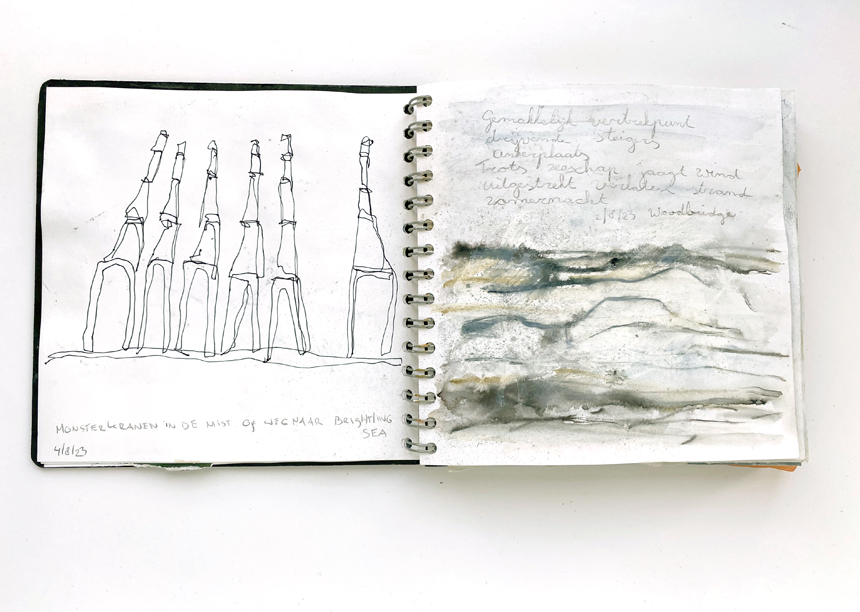 MONSTERKRANEN IN DE MIST Op WEG NAAR BRIGHTLING
SEA
4/8/23
Gemakkelijk vertrekpunt
drijvende steigers
ankerplaats
Trots zeeschap jaagt wind
uitgestrekt verlaten strand
zomernacht
2/8/23 Woodbridge